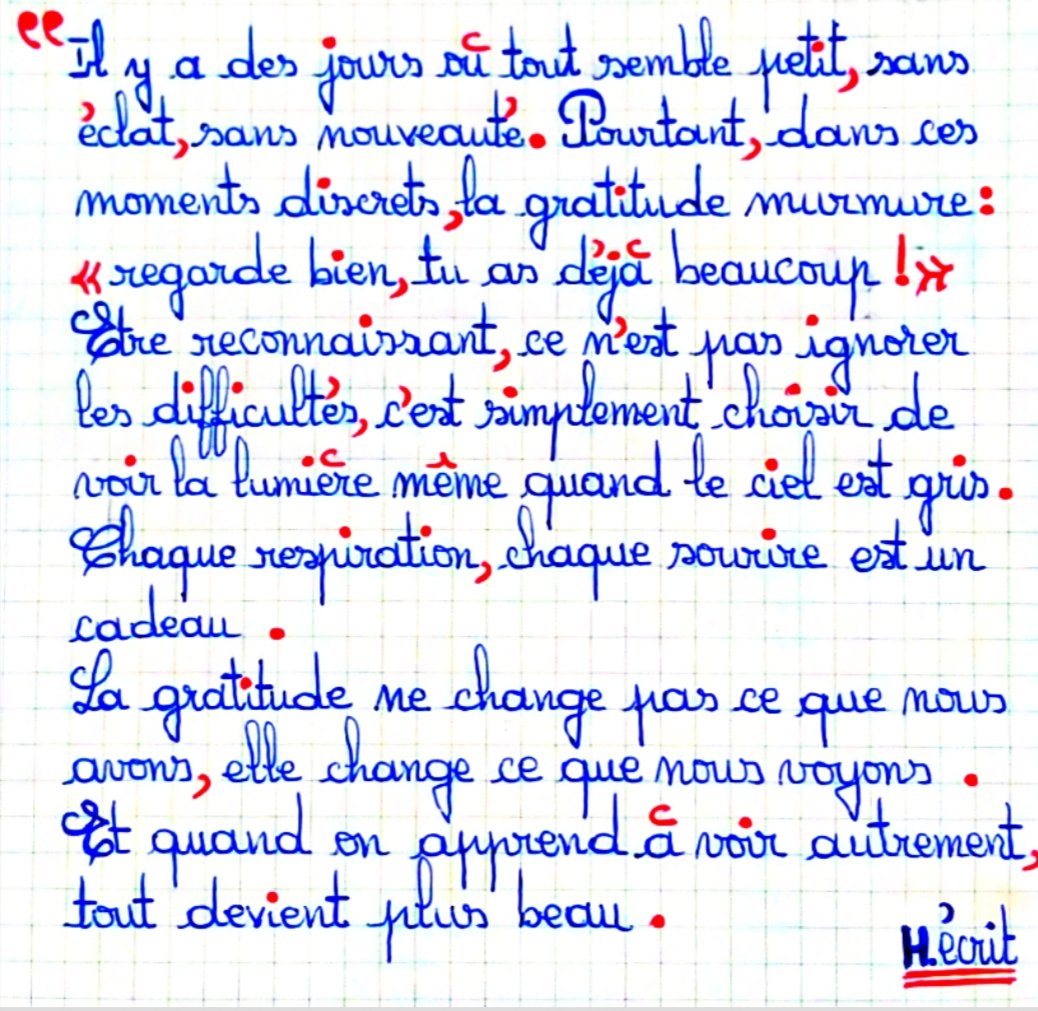 “Il y a des jours où tout semble petit, sans
éclat, sans nouveauté. Pourtant, dans ces
moments discrets, la gratitude murmure :
« regarde bien, tu as déjà beaucoup ! »
Etre reconnaissant, ce n'est pas ignorer
les difficultés, c'est simplement choisir de
voir la lumière même quand le ciel est gris.
Chaque respiration, chaque sourire est un
cadeau .
La gratitude ne change pas ce que nous
avons, elle change ce que nous voyons .
Et quand on apprend à voir autrement,
tout devient plus beau .
H.écrit